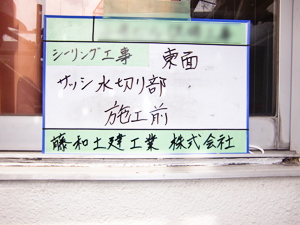 シーリング工事 東面
サッシ水切り部
施工前
藤和土建工業 株式会社